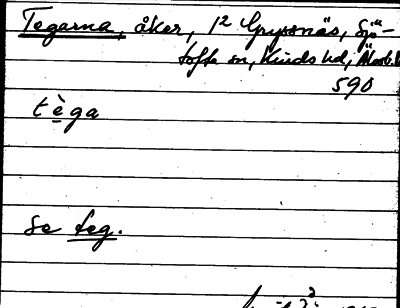 Tegarna, åker, 1² Grytsnäs, Sjö-
tofta sn, Kinds hd, Älvsb. l
590
tèga
se teg.